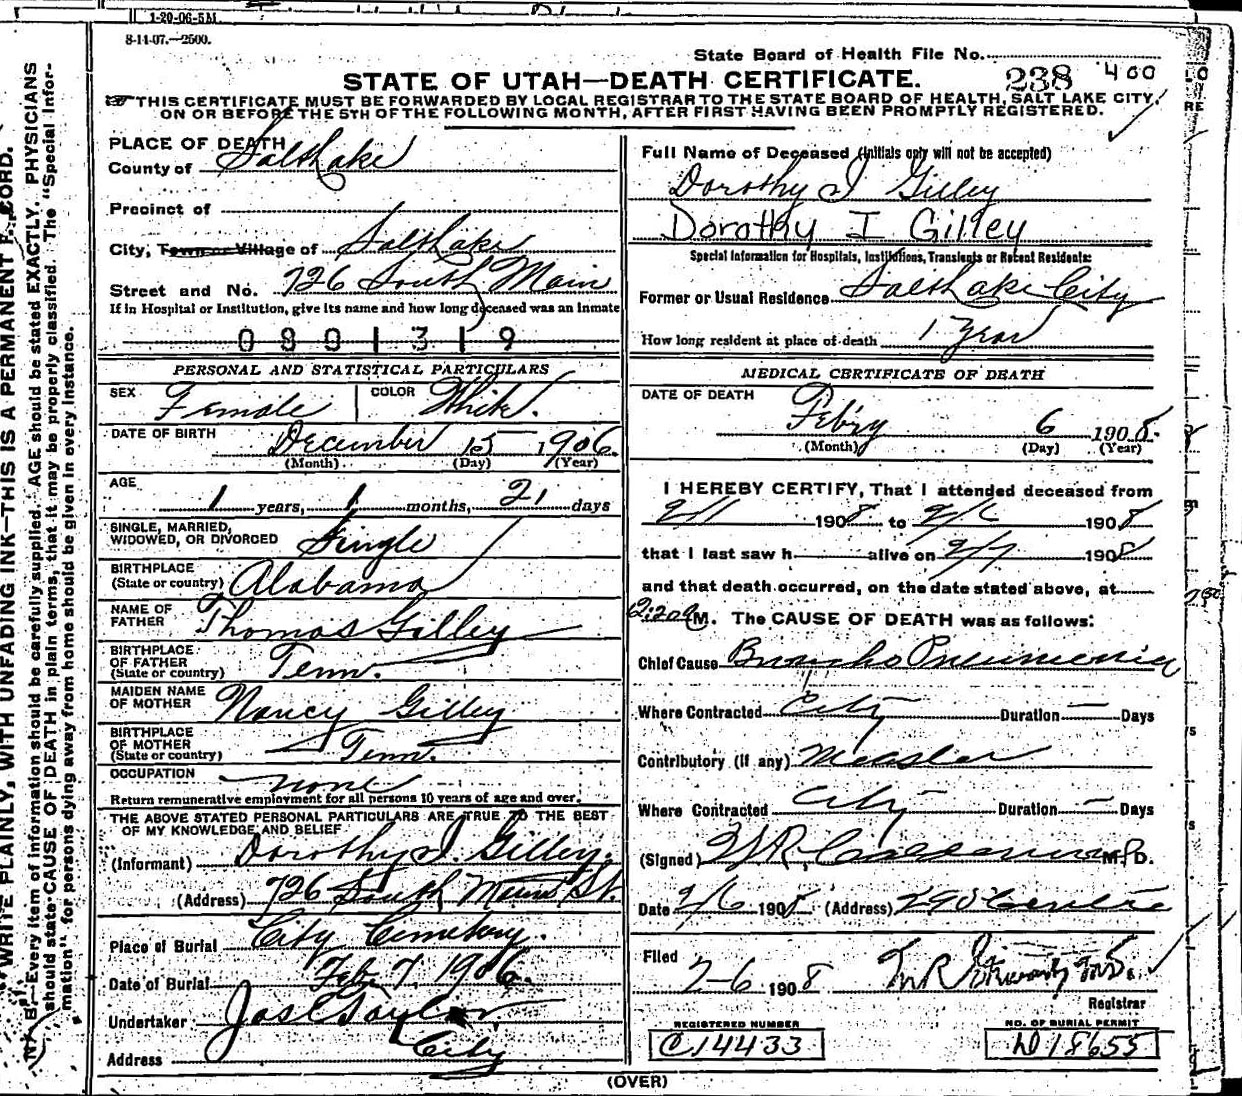 1-20-06-5M
8-11-07.—2500.
State Board of Health File No.
238 400
STATE OF UTAH—DEATH CERTIFICATE.
THIS CERTIFICATE MUST BE FORWARDED BY LOCAL REGISTRAR TO THE STATE BOARD OF HEALTH, SALT LAKE CITY,
ON OR BEFORE THE 5TH OF THE FOLLOWING MONTH, AFTER FIRST HAVING BEEN PROMPTLY REGISTERED.
WRITE PLAINLY, WITH UNFADING INK—THIS IS A PERMANENT RECORD.
N. B.—Every item of information should be carefully supplied. AGE should be stated EXACTLY. PHYSICIANS
should state CAUSE OF DEATH in plain terms, that it may be properly classified. The "Special Infor-
mation" for persons dying away from home should be given in every instance.
PLACE OF DEATH
County of Salt Lake
Precinct of
City, Town or Village of Salt Lake
Street and No. 726 South Main
If in Hospital or Institution, give its name and how long deceased was an inmate
0801319
PERSONAL AND STATISTICAL PARTICULARS
SEX Female COLOR White.
DATE OF BIRTH December 15 1906.
(Month) (Day) (Year)
AGE
1 years, 1 months, 21 days
SINGLE, MARRIED,
WIDOWED, OR DIVORCED Single
BIRTHPLACE
(State or country) Alabama
NAME OF
FATHER Thomas Gilley
BIRTHPLACE
OF FATHER
(State or country) Tenn.
MAIDEN NAME
OF MOTHER Nancy Gilley
BIRTHPLACE
OF MOTHER
(State or country) Tenn.
OCCUPATION none
Return remunerative employment for all persons 10 years of age and over.
THE ABOVE STATED PERSONAL PARTICULARS ARE TRUE TO THE BEST
OF MY KNOWLEDGE AND BELIEF
(Informant) Dorothy I. Gilley.
(Address) 726 South Main St.
Place of Burial City Cemetery.
Date of Burial Feb. 7, 1906.
Undertaker Jas E Taylor
Address City
Full Name of Deceased (Initials only will not be accepted)
Dorothy I Gilley
Dorothy I Gilley
Special Information for Hospitals, Institutions, Transients or Recent Residents:
Former or Usual Residence Salt Lake City
How long resident at place of death 1 Year
MEDICAL CERTIFICATE OF DEATH
DATE OF DEATH
Feb'ry 6 1908.
(Month) (Day) (Year)
I HEREBY CERTIFY, That I attended deceased from
2/1 1908 to 2/6 1908
that I last saw h alive on 2/7 1908
and that death occurred, on the date stated above, at
12:20 a M. The CAUSE OF DEATH was as follows:
Chief Cause Broncho Pneumonia
Where Contracted City Duration — Days
Contributory (if any) Measles
Where Contracted City Duration — Days
(Signed) M. D.
Date 2/6 1908 (Address)
Filed
2-6 1908
Registrar
REGISTERED NUMBER
C14433
NO. OF BURIAL PERMIT
D18655
(OVER)